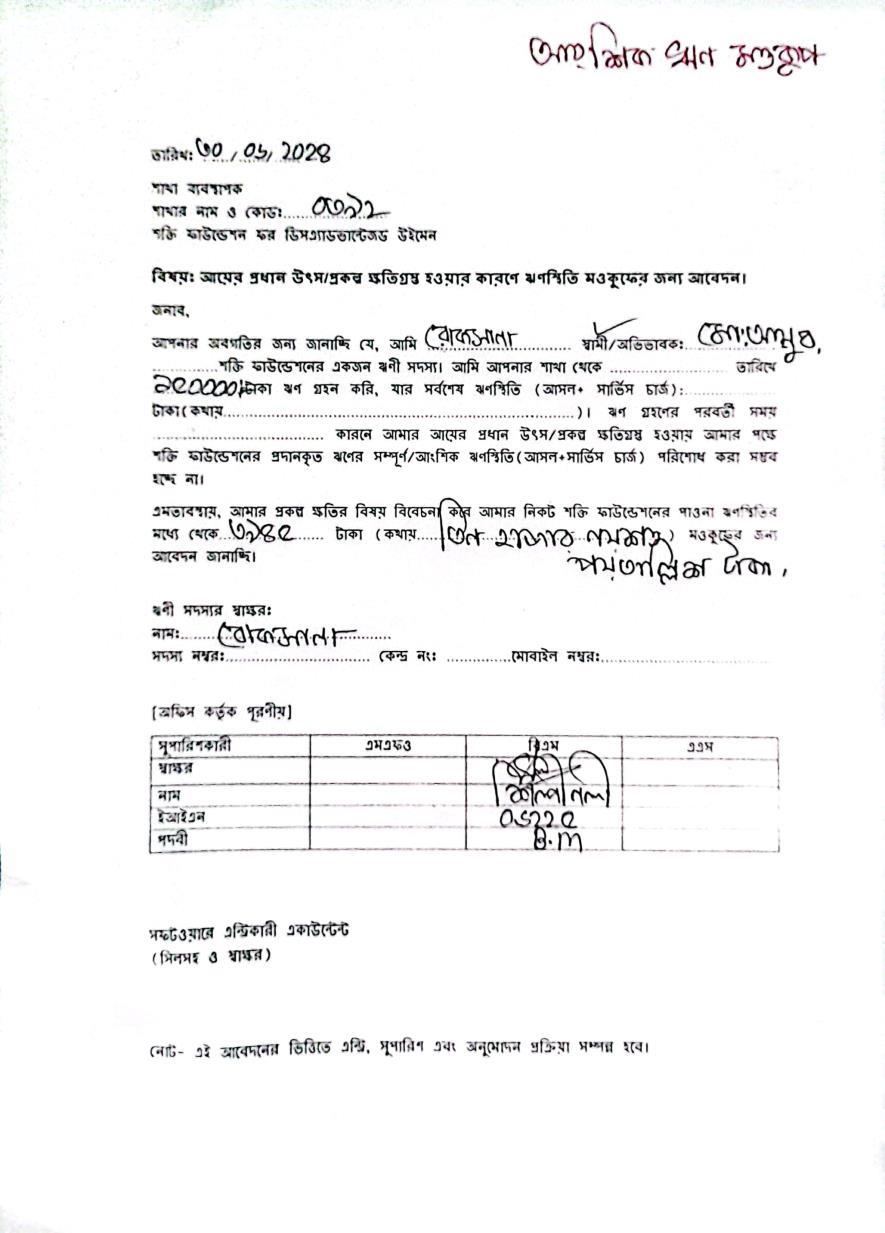 আংশিক ঋন মওকুপ
তারিখ: ৩০/০৬/২০২৪
শাখা ব্যবস্থাপক
শাখার নাম ও কোড:......০৩৯২
শক্তি ফাউন্ডেশন ফর ডিসএ্যাডভান্টেজড উইমেন
বিষয়: আয়ের প্রধান উৎস/প্রকল্প ক্ষতিগ্রস্থ হওয়ার কারণে ঋণস্থিতি মওকুফের জন্য আবেদন।
জনাব,
আপনার অবগতির জন্য জানাচ্ছি যে, আমি রোকসানা .............. স্বামী/অভিভাবক: মো:
.............শক্তি ফাউন্ডেশনের একজন ঋনী সদস্য। আমি আপনার শাখা থেকে ........................ তারিখে
টাকা ঋণ গ্রহন করি, যার সর্বশেষ ঋণস্থিতি (আসল+ সার্ভিস চার্জ):..................
টাকা(কথায়......................................................................)। ঋণ গ্রহণের পরবর্তী সময়
................................. কারনে আমার আয়ের প্রধান উৎস/প্রকল্প ক্ষতিগ্রস্থ হওয়ায় আমার পক্ষে
শক্তি ফাউন্ডেশনের প্রদানকৃত ঋণের সম্পূর্ণ/আংশিক ঋণস্থিতি(আসল+সার্ভিস চার্জ) পরিশোধ করা সম্ভব
হচ্ছে না।
এমতাবস্থায়, আমার প্রকল্প ক্ষতির বিষয় বিবেচনা করে আমার নিকট শক্তি ফাউন্ডেশনের পাওনা ঋণস্থিতির
মধ্যে থেকে ৩৯৪৫ টাকা (কথায় তিন হাজার নয়শত) মওকুফের জন্য
পয়তাল্লিশ টাকা।
আবেদন জানাচ্ছি।
ঋনী সদস্যর স্বাক্ষর:
নাম: রোকসানা
সদস্য নম্বর:.............................. কেন্দ্র নং: .............মোবাইল নম্বর:..................................
[অফিস কর্তৃক পূরণীয়]
সুপারিশকারী এমএফও বিএম এএম
স্বাক্ষর
নাম
ইআইএন ০৬২২৫
পদবী B.M
সফটওয়ারে এন্ট্রিকারী একাউন্টেন্ট
(সিলসহ ও স্বাক্ষর)
নোট- এই আবেদনের ভিত্তিতে এন্ট্রি, সুপারিশ এবং অনুমোদন প্রক্রিয়া সম্পন্ন হবে।